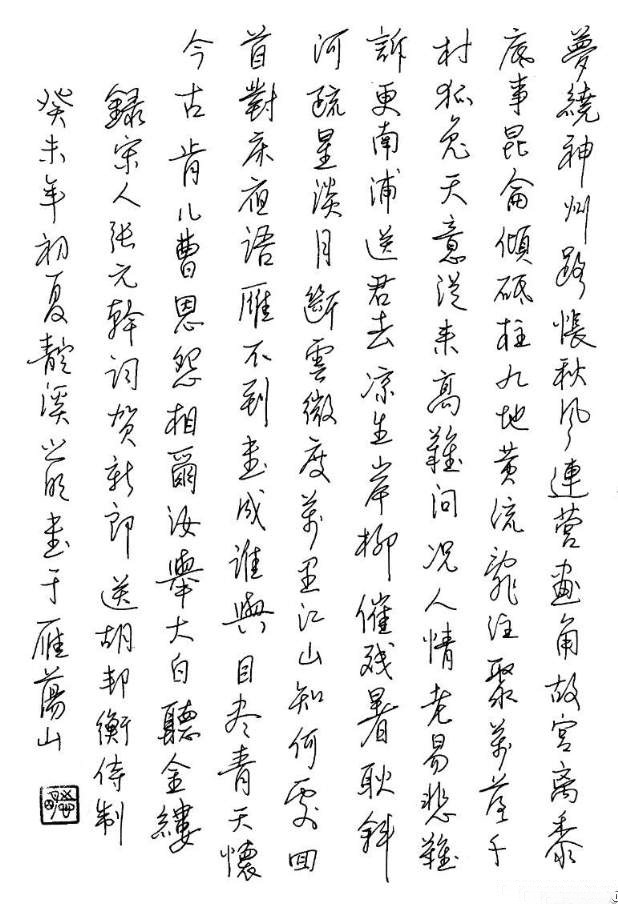 夢繞神州路悵秋风連营畫角故宫离黍
底事昆侖傾砥柱九地黄流亂注聚萬落千
村狐兔天意從来高難问况人情老易悲難
訴更南浦送君去凉生岸柳催残暑耿斜
河疏星淡月斷雲微度萬里江山知何處回
首對床夜語雁不到書成谁與目尽青天懷
今古肯儿曹恩怨相爾汝舉大白聽金縷
録宋人张元幹词贺新郎送胡邦衡侍制
癸未年初夏靛溪 书于雁蕩山